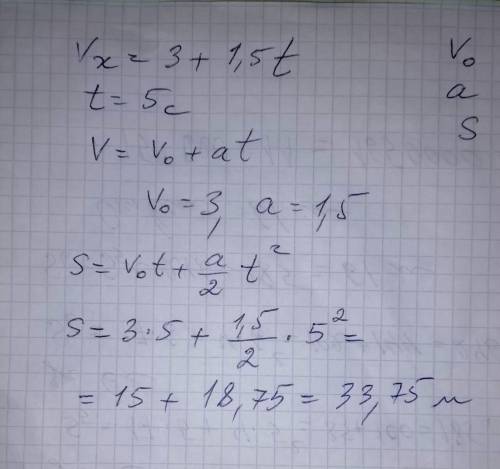 Vx = 3 + 1,5t
V₀
t = 5с
a
S
V = V₀ + at
V₀ = 3, a = 1,5
S = V₀t + a/2 t²
S = 3·5 + 1,5/2 · 5² =
= 15 + 18,75 = 33,75 м